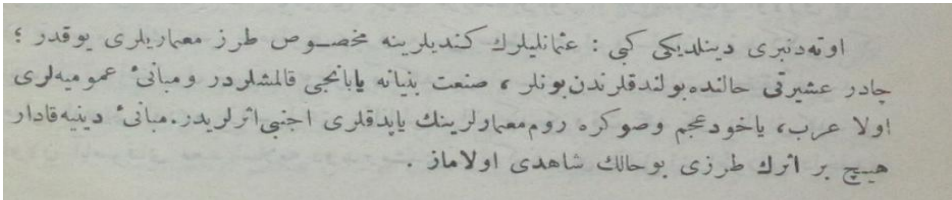 اوته‌دنبری دینلدیکی کبی : عثمانلیلرك کندیلرینه مخصوص طرز معماریلری یوقدر ؛
چادر عشیرتی حالنده بولندقلرندن بونلر ، صنعت بنیانه یابانجی قالمشلردر ومبانیٔ عمومیه‌لری
اولا عرب، یاخود عجم وصوکره روم معمارلرینك یاپدقلری اجنبی اثرلریدر. مبانیٔ دینیه قادار
هیچ بر اثرك طرزی بو حالك شاهدی اولاماز .